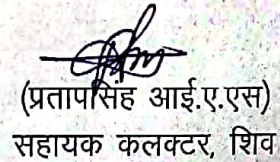 (प्रतापसिंह आई.ए.एस)
सहायक कलक्टर, शिव